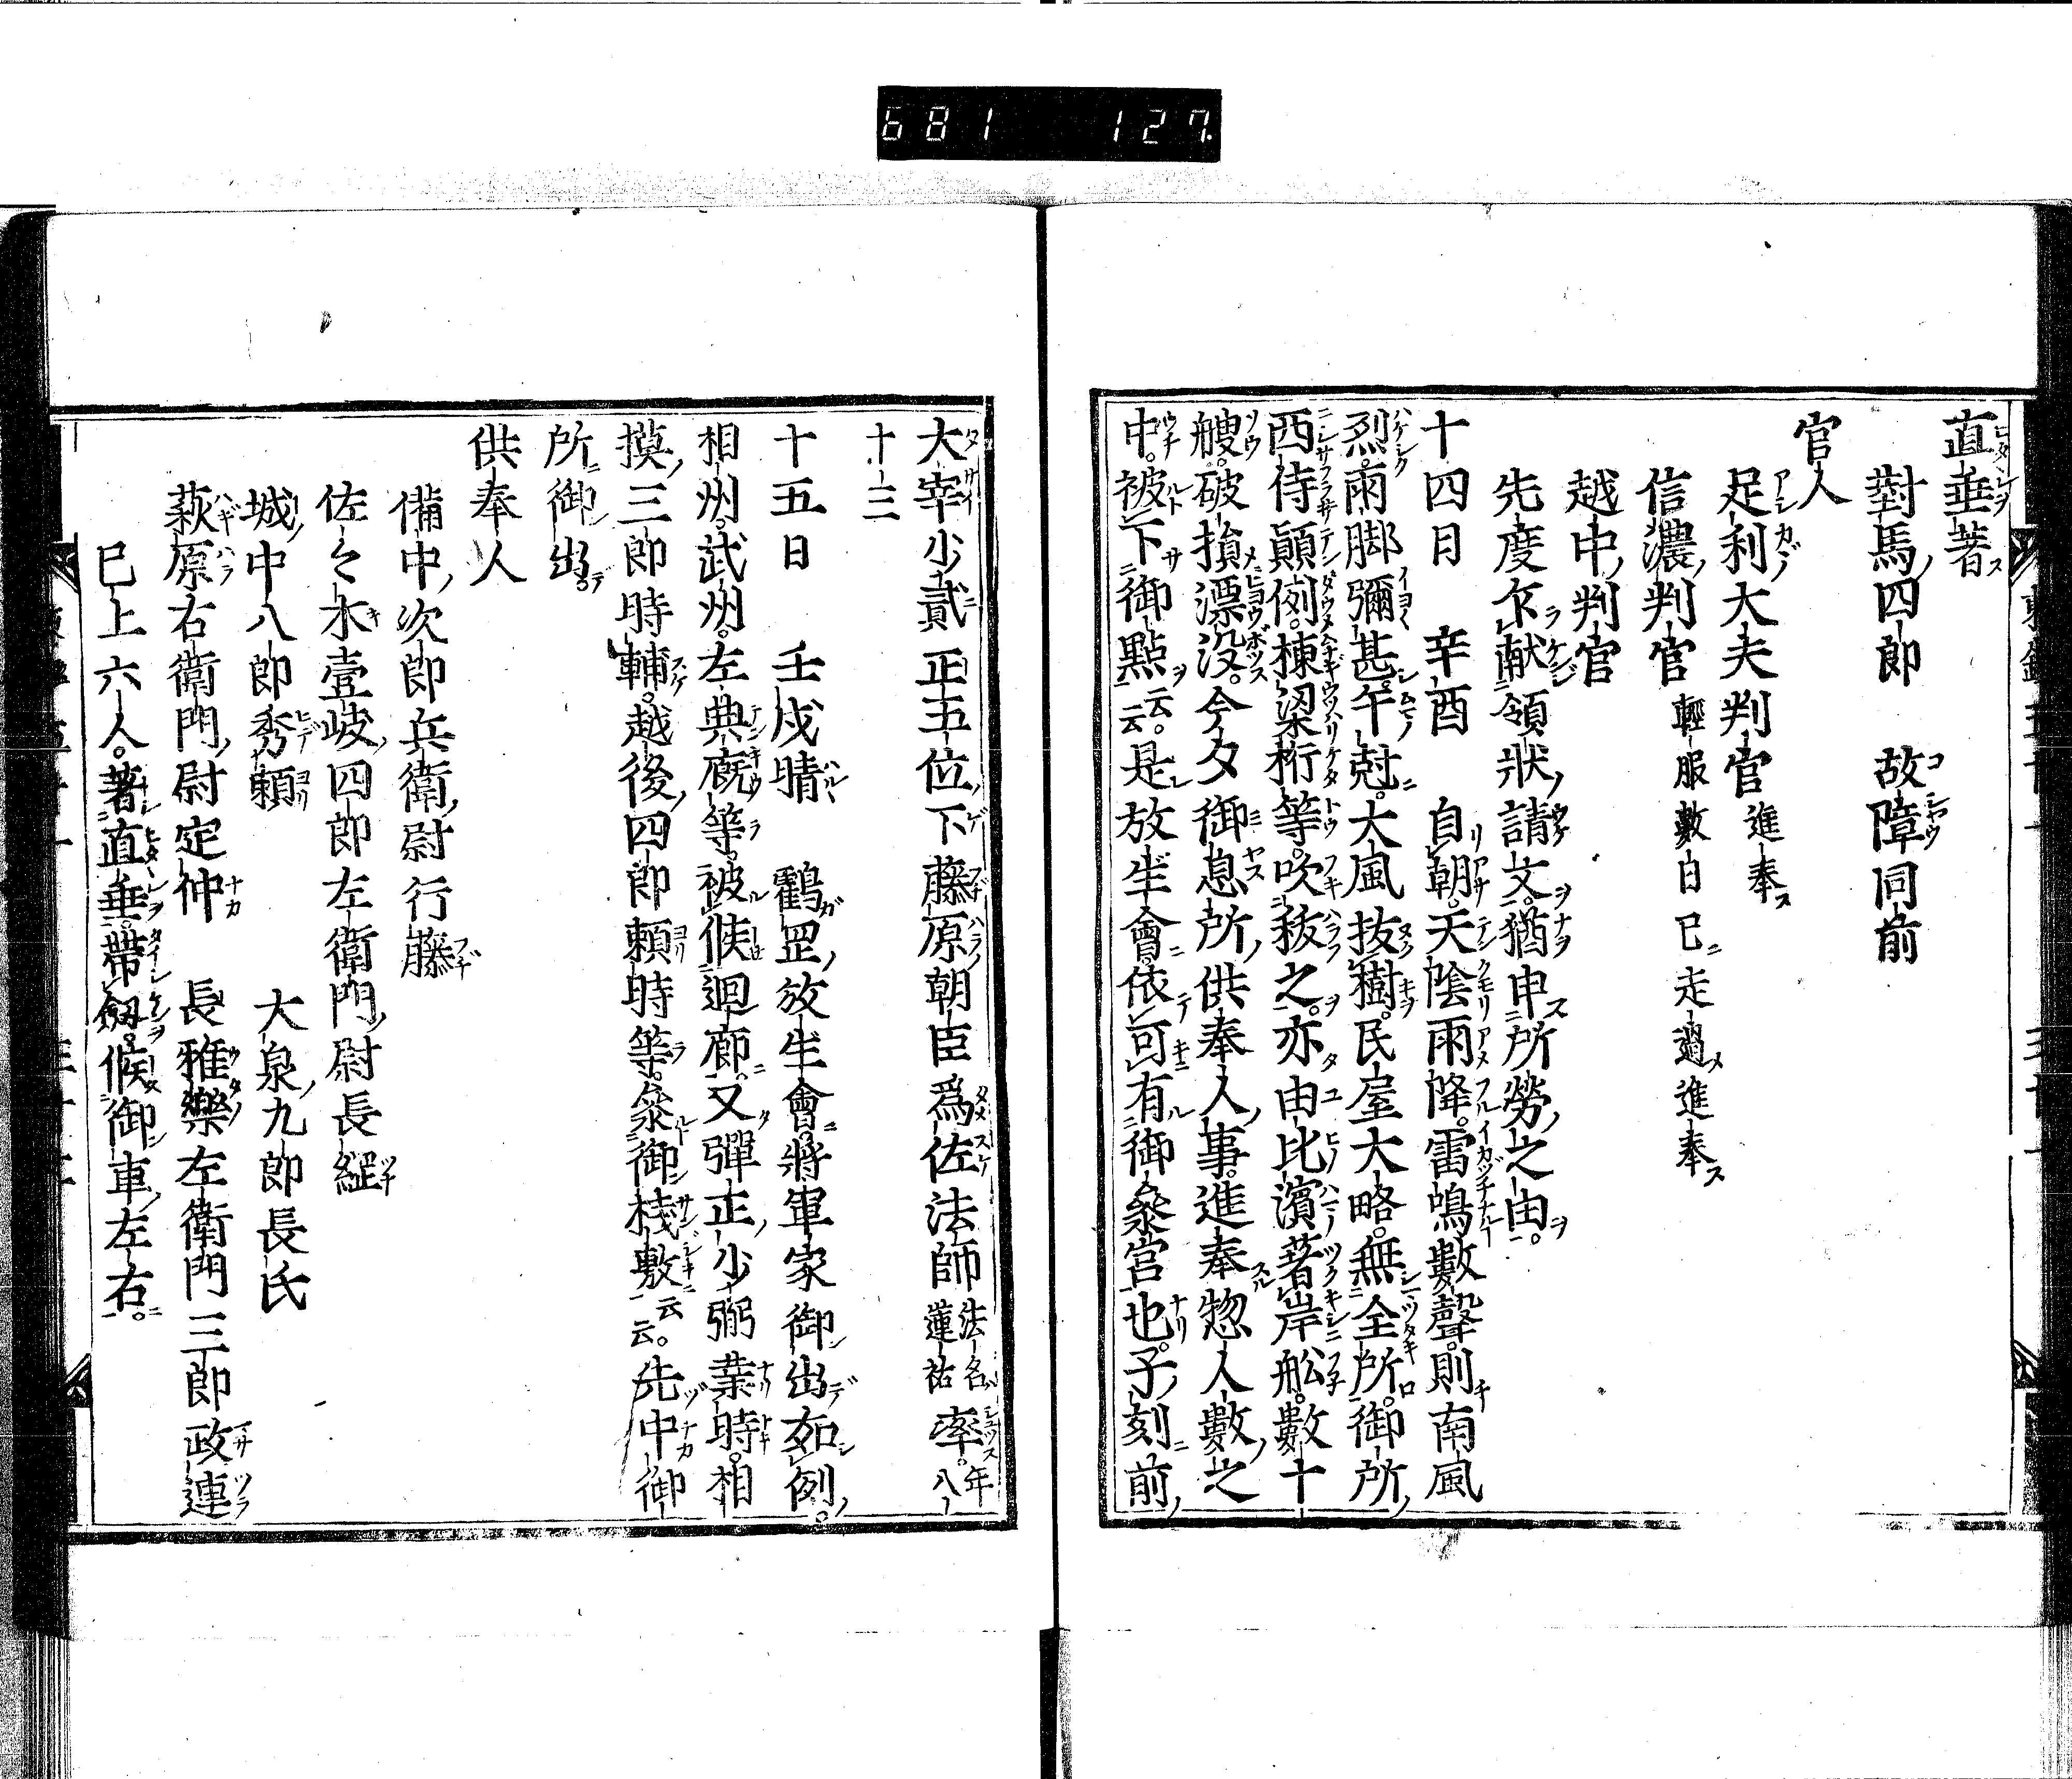 681 127
直垂著
對馬四郎 故障同前
官人
足利大夫判官 進奉
信濃判官 輕服數日已走過進奉
越中判官
先度乍献領狀請文。猶申所勞之由。
十四日 辛酉 自朝。天陰雨降。雷鳴數聲。則南風
烈。雨脚彌甚。午尅。大風抜樹。民屋大略。無全所。御所
西侍顚倒。棟梁桁等。吹抜之。亦由比濱著岸舩。數十
艘。破損漂没。今夕御息所供奉人事。進奉惣人數之
中。被下御點云云。是放生會。依可有御參宮也。子刻前
大宰少貳正五位下藤原朝臣爲佐法師 法名蓮祐 卒。年八
十三
十五日 壬戌晴 鶴岡放生會。將軍家御出如例。
相州。武州。左典廐等。被候廻廊。又彈正少弼業時。相
摸三郎時輔。越後四郎頼時等。參御棧敷云云。先中御
所御出。
供奉人
備中次郎兵衛尉行藤
佐々木壹岐四郎左衛門尉長綱
城中八郎秀頼 大泉九郎長氏
萩原右衛門尉定仲 長雅樂左衛門三郎政連
已上六人。著直垂。帶劔。候御車左右。